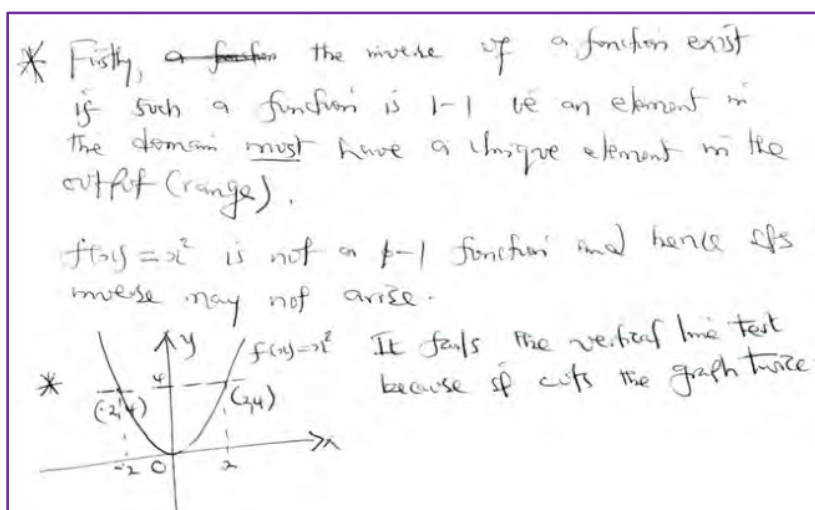 * Firstly, a function the inverse of a function exist
if such a function is 1-1 ie an element in
the domain must have a unique element in the
output (range).
f(x) = x² is not a 1-1 function and hence its
inverse may not arise.
y f(x)=x² It fails the vertical line test
* 4 because it cuts the graph twice.
(-2,4) (2,4)
x
-2 0 2